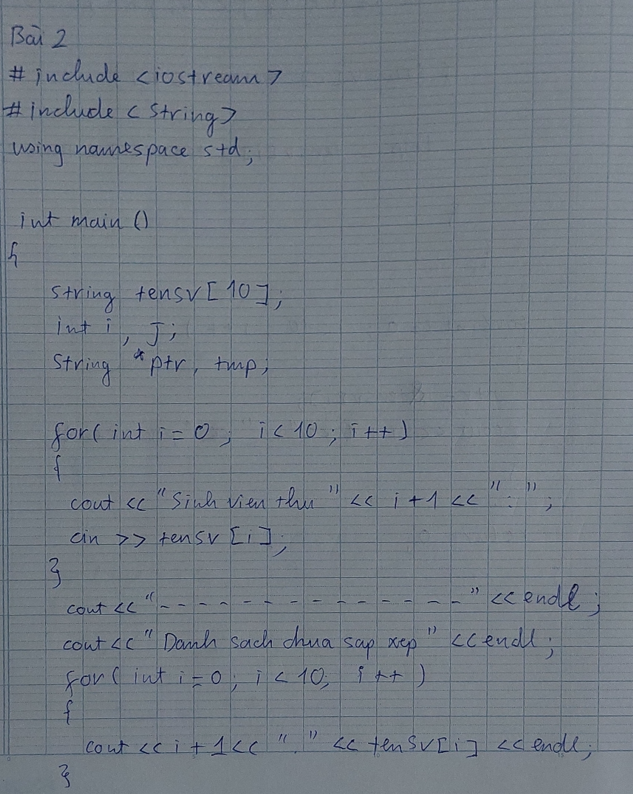 Bài 2
# include <iostream>
# include < String>
using namespace std;
int main ()
{
string tensv [10];
int i, j;
String *ptr, tmp;
for( int i = 0 ; i < 10 ; i++ )
{
cout << "Sinh vien thu " << i + 1 << " : ";
cin >> tensv [i];
}
cout << "- - - - - - - - - - - - - -" << endl;
cout << " Danh sach chua sap xep " << endl;
for( int i = 0; i < 10; i ++ )
{
cout << i + 1 << " . " << tensv[i] << endl;
}